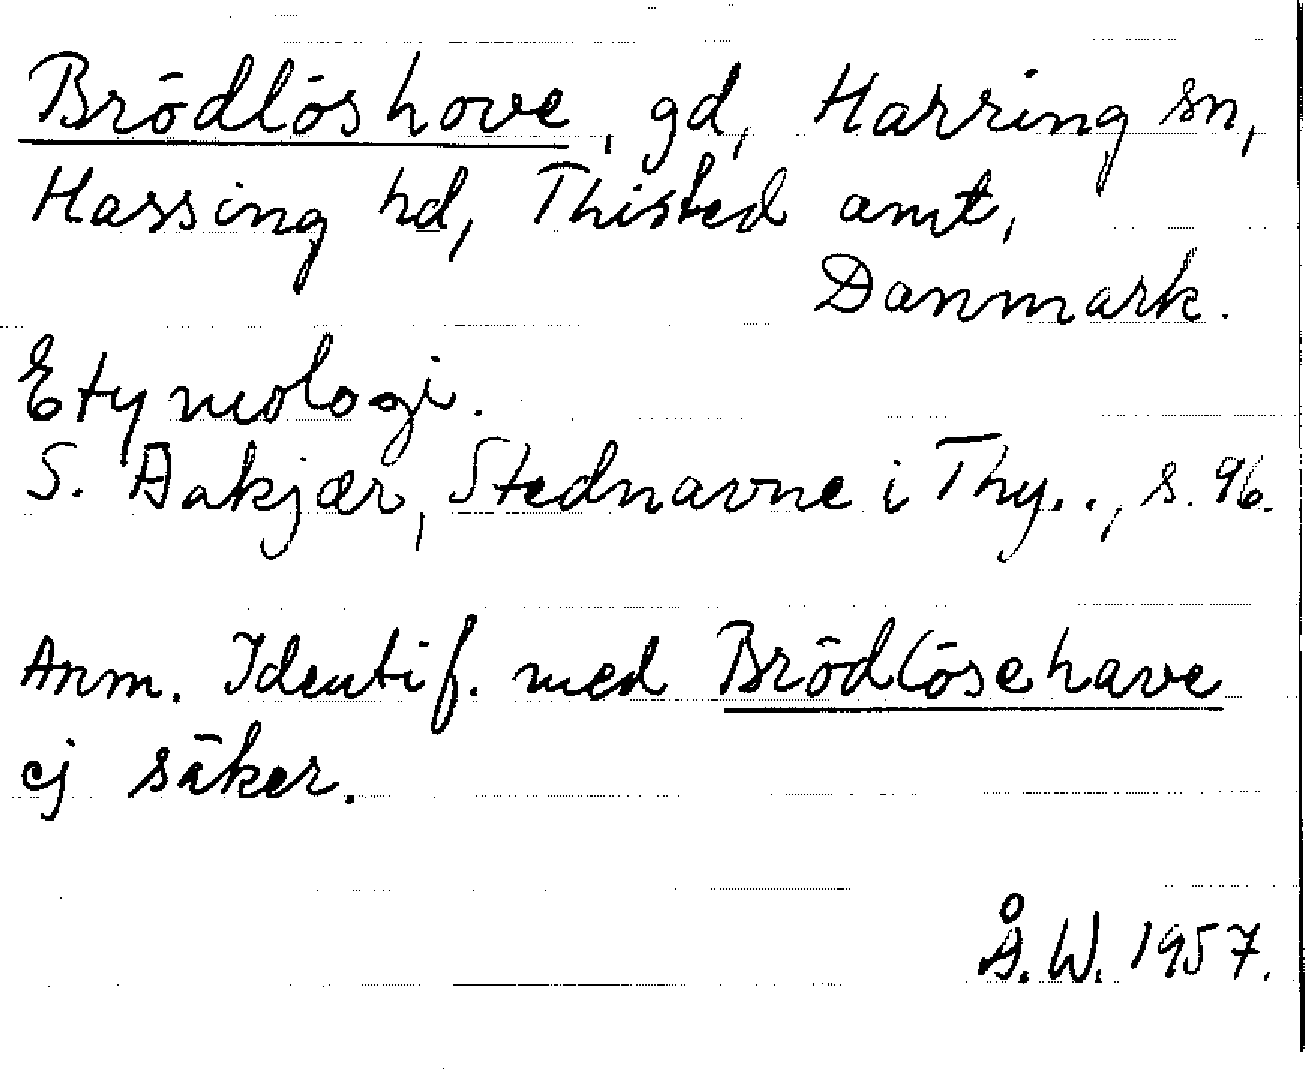 Brödlöshove, gd, Harring sn,
Hassing hd, Thisted amt,
Danmark.
Etymologi.
S. Aakjær, Stednavne i Thy.., s. 96.
Anm. Identif. med Brödlösehave
ej säker.
Å.W. 1957.